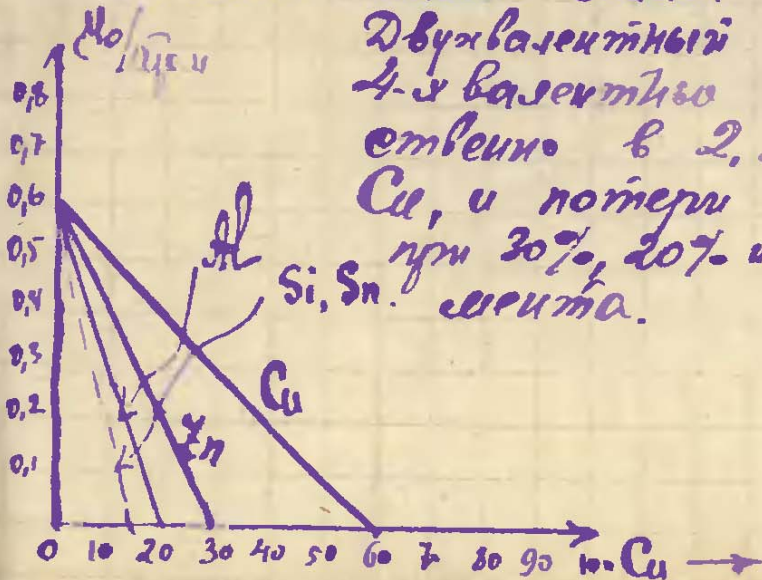 Двухвалентный
4-х валентно
ственно в 2,
Cu, и потери
при 30%, 20% и
мента.
Mo/
0,8
0,7
0,6
0,5
0,4
0,3
0,2
0,1
Al
Si, Sn.
Cu
Zn
0 10 20 30 40 50 60 7 80 90 100 Cu